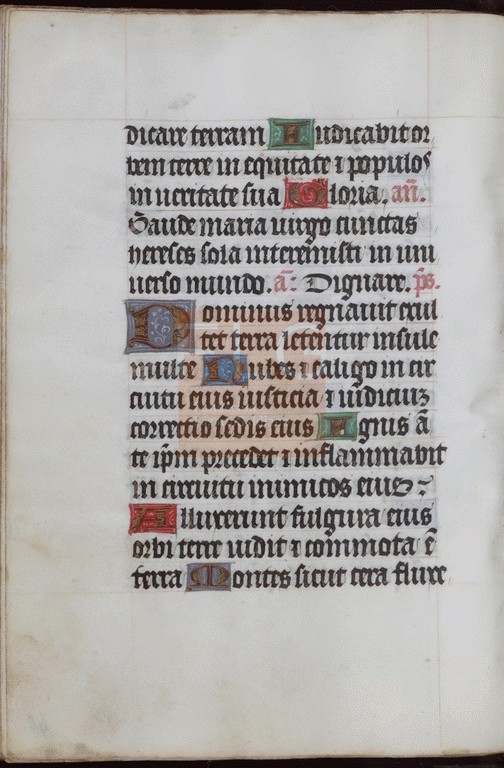 dicare terram Iudicabit or
bem terre in equitate ⁊ populos
in ueritate sua Gloria. an̄.
Gaude maria uirgo cunctas
hereses sola interemisti in uni
uerso mundo. a̅: Dignare. p̄s.
Dominus regnauit exul
tet terra letentur insule
multe Nubes ⁊ caligo in cir
cuitu eius iusticia ⁊ iudiciuʒ
correctio sedis eius Ignis ā
te ip̄m precedet ⁊ inflammabit
in circuitu inimicos eius :
Alluxerunt fulgura eius
orbi terre uidit ⁊ commota ē
terra Montes sicut cera fluxe